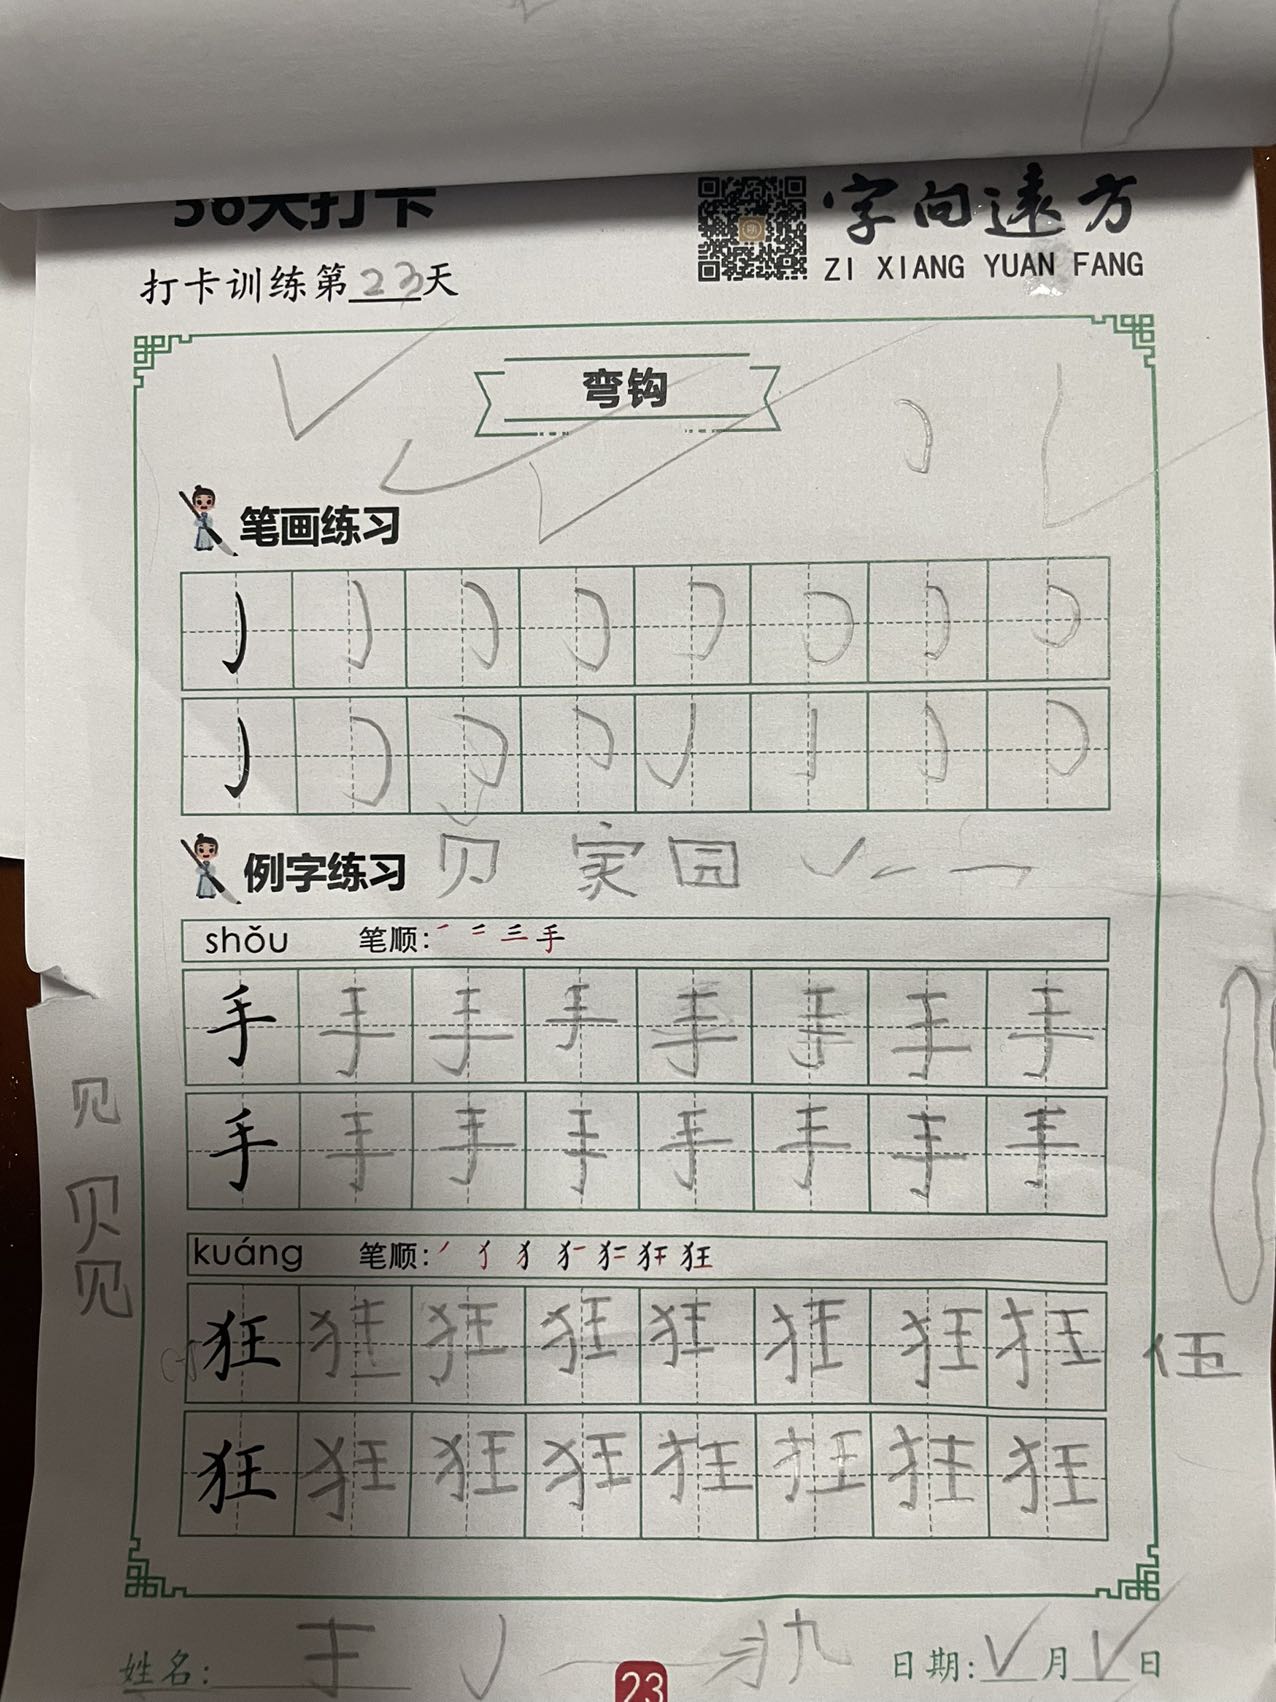 36天打卡
字向远方
ZI XIANG YUAN FANG
打卡训练第23天
弯钩
笔画练习
例字练习 贝 家 园
shǒu 笔顺: 手
手 手 手 手 手 手 手 手
手 手 手 手 手 手 手 手
见
贝
见
kuáng 笔顺: 狂
狂 狂 狂 狂 狂 狂 狂 狂
伍
狂 狂 狂 狂 狂 狂 狂 狂
姓名:
日期: 月 日
23